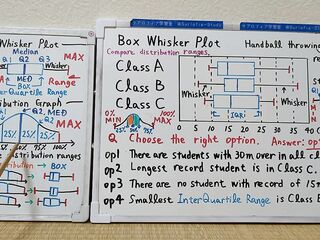 Whisker Plot
Median
Q1 Q2 Q3 MAX
Whisker
MED Range
InterQuartile Range
Distribution Graph
Q2, MED
MAX
25% 25% 25%
50% 75% 100%
distribution ranges
BOX
Box Whisker Plot
Handball throwing
Compare distribution ranges.
Class A
Class B
Class C
Whisker
Whisker
IQR
0% MIN
100% MAX
25% 50% 75%
0 5 10 15 20 25 30 35 40
Q Choose the right option. Answer: op
op1 There are students with 30m over in all cl
op2 Longest record student is in Class C.
op3 There are no student with record of 15m
op4 Smallest InterQuartile Range is Class B